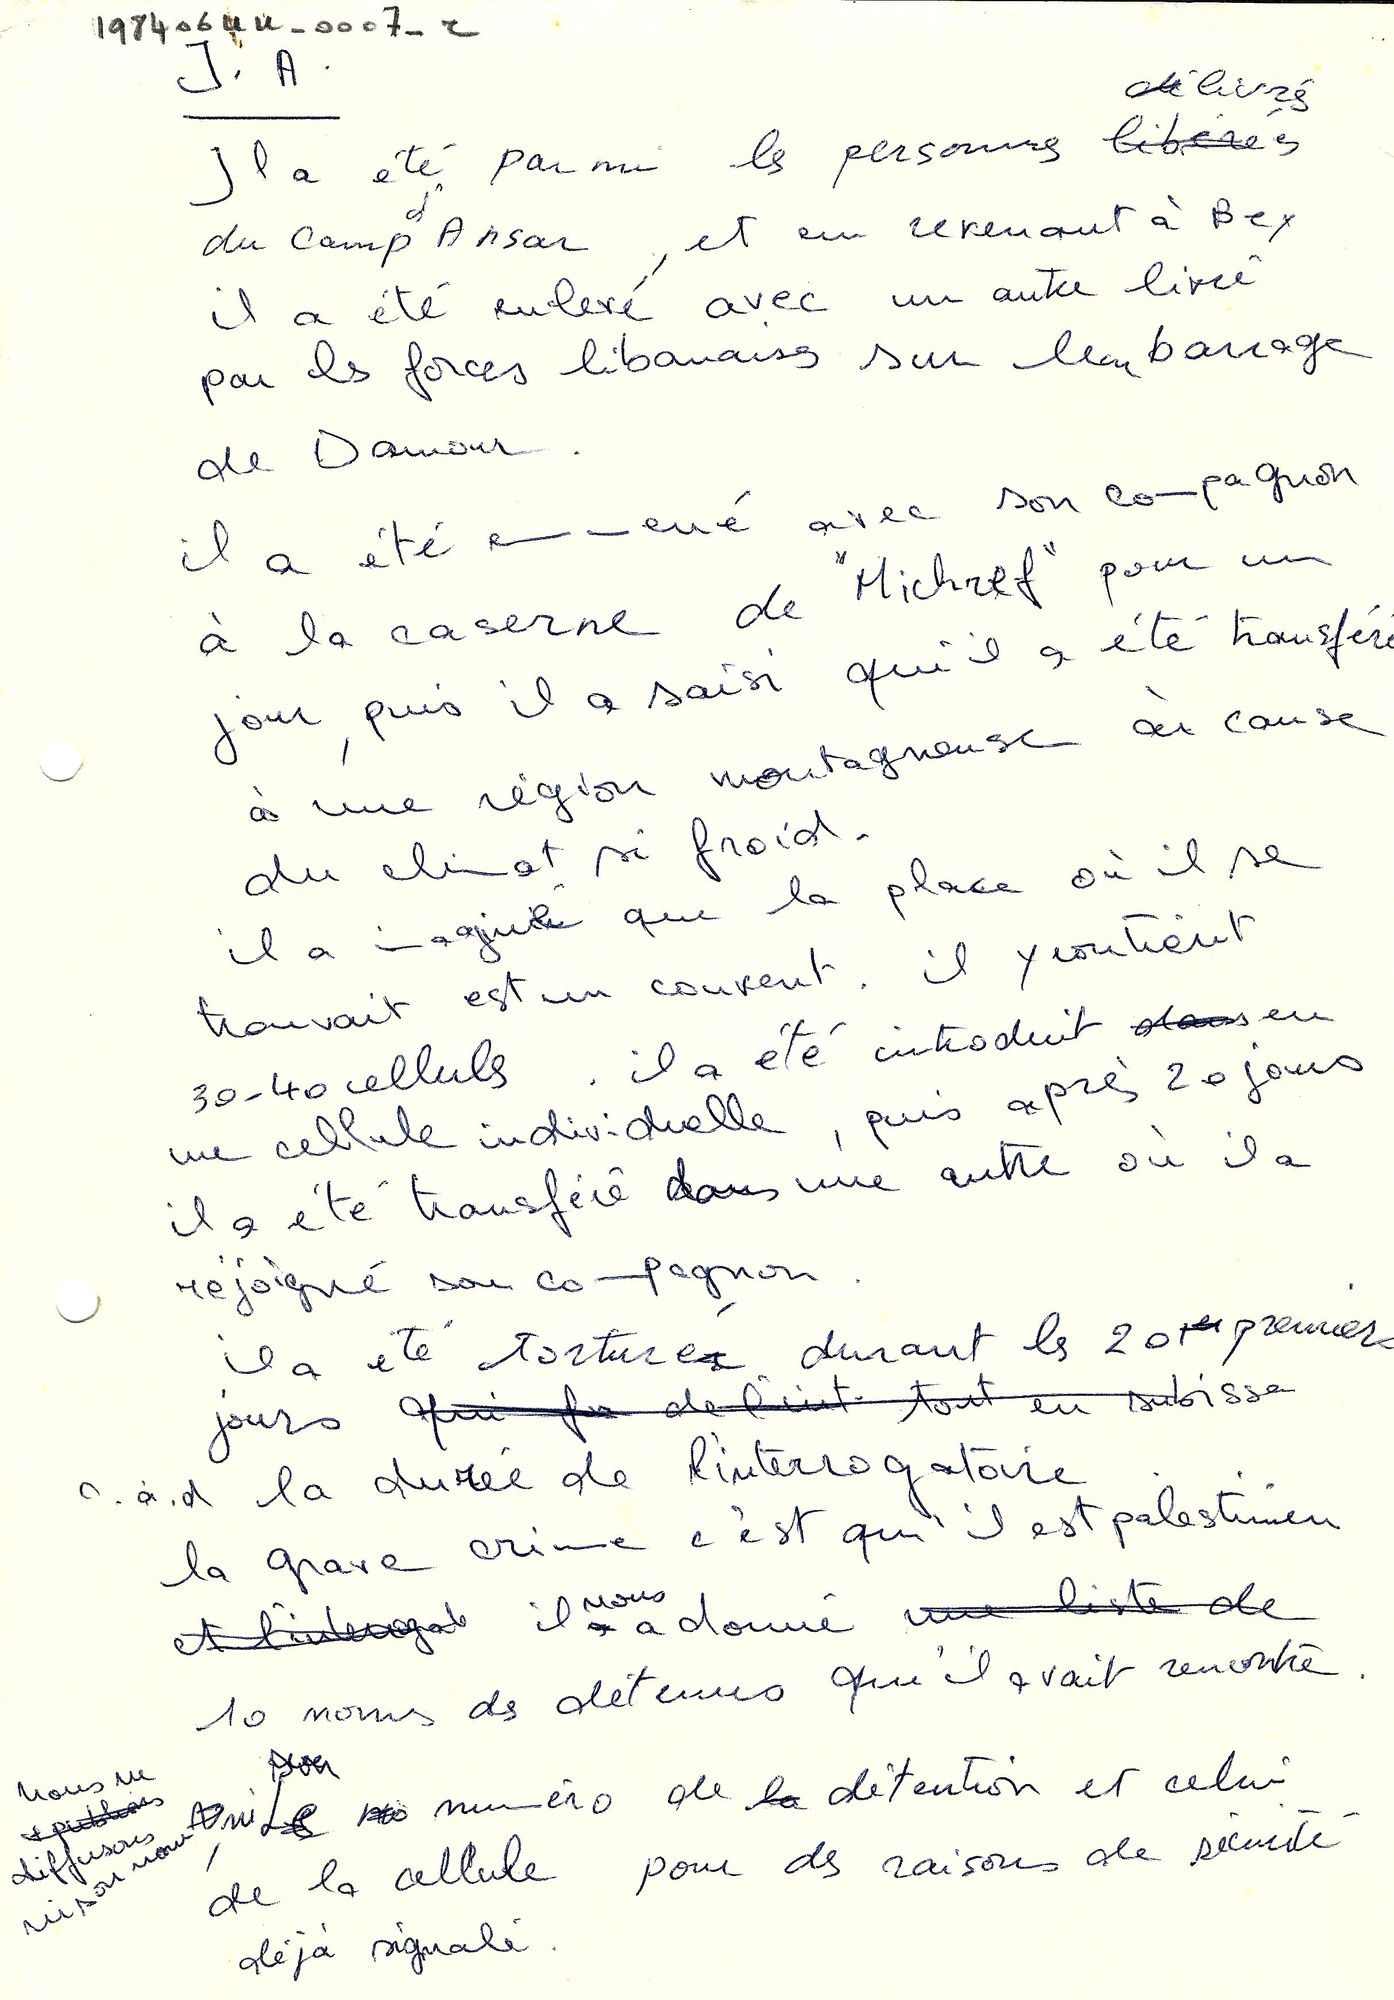 19840644-0007-r
J. A.
délivrés
Il a été parmi les personnes libérés
du camp d'Ansar, et en revenant à Bey
il a été enlevé avec un autre livré
par les forces libanaises sur un barrage
de Damour.
il a été emmené avec son compagnon
à la caserne de "Michref" pour un
jour, puis il a saisi qu'il a été transféré
à une région montagneuse à cause
du climat si froid.
il a imaginé que la place où il se
trouvait est un couvent. il y contient
30-40 cellules. il a été introduit dans en
une cellule individuelle, puis après 20 jours
il a été transféré dans une autre où il a
réjoigné son compagnon.
il a été torturé durant les 20 premiers
jours qui de l'int. tout en subisse
c.à.d la durée de l'interrogatoire.
la grave crime c'est qu'il est palestinien
et l'interrogat il nous a donné une liste de
10 noms des détenus qu'il avait rencontré.
nous ne publions diffusons ni son nom
, ni son numéro de la détention et celui
de la cellule pour des raisons de sécurité
déjà signalé.